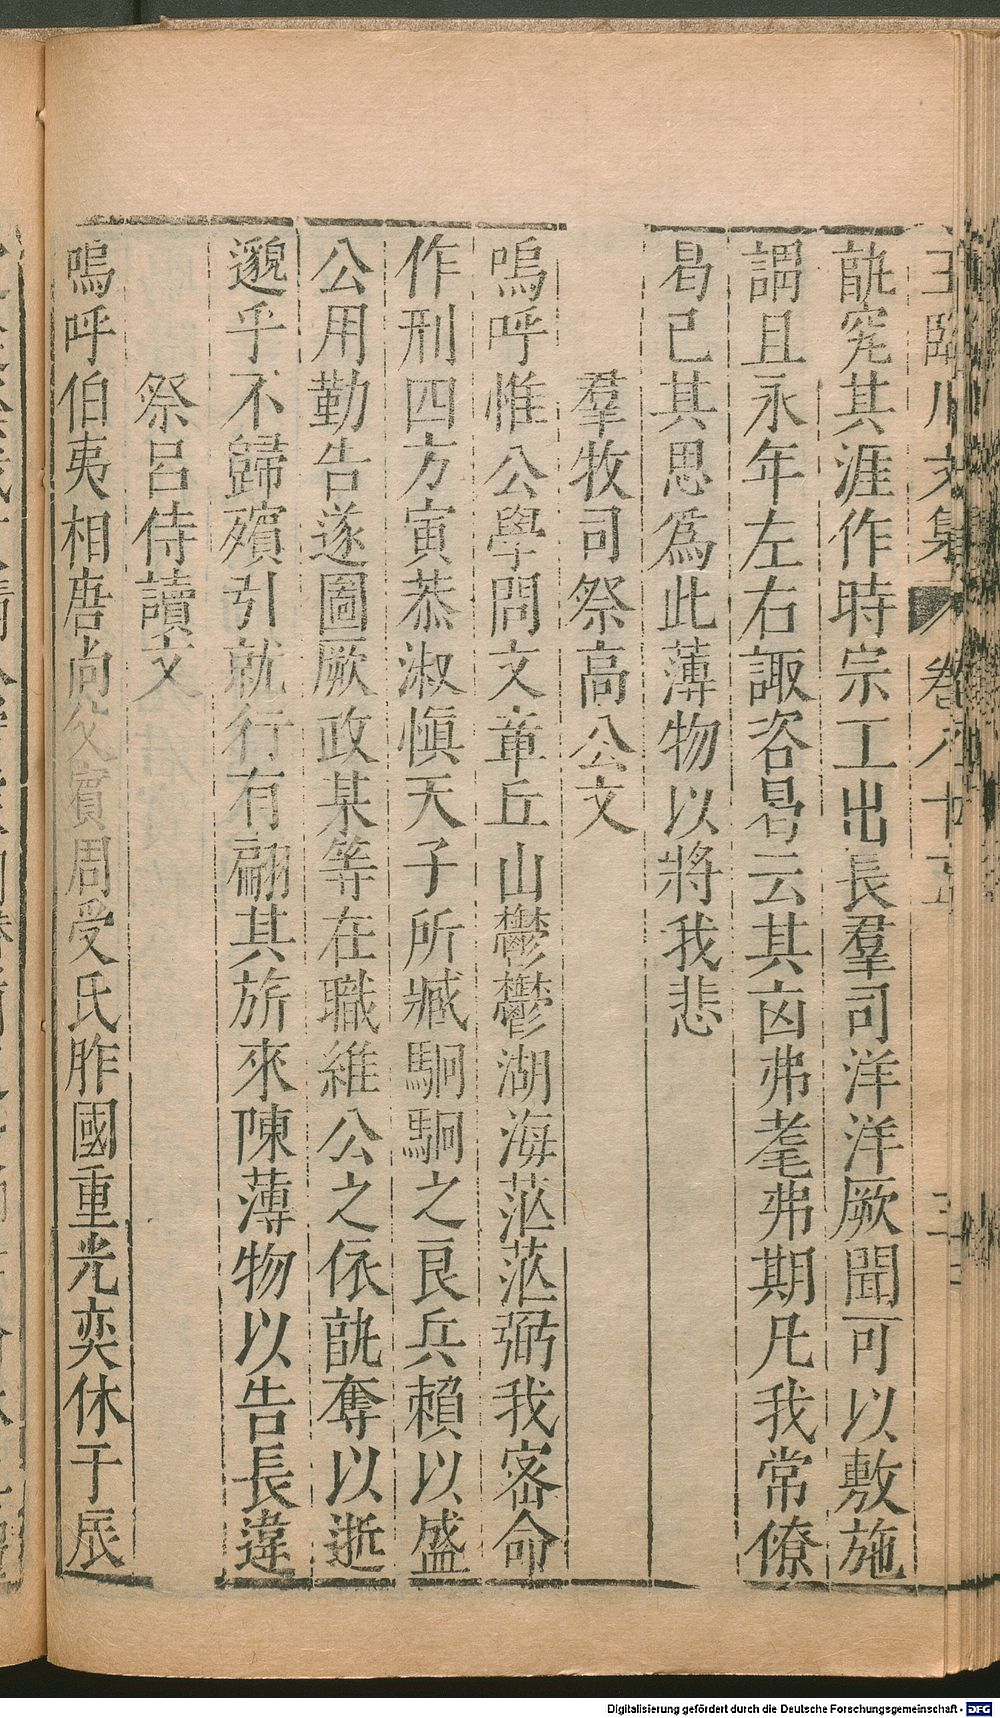 王臨川文集 卷八十五
孰究其涯作時宗工出長羣司洋洋厥聞可以敷施
謂且永年左右諏咨曷云其凶弗耄弗期凡我常僚
曷已其思爲此薄物以將我悲
羣牧司祭高公文
嗚呼惟公學問文章丘山鬱鬱湖海茫茫弼我密命
作刑四方寅恭淑愼天子所臧駉駉之良兵賴以盛
公用勤告遂圖厥政某等在職維公之依孰奪以逝
邈乎不歸殯引就行有翩其旂來陳薄物以告長違
祭呂侍讀文
嗚呼伯夷相唐尚父賓周受氏胙國重光奕休于辰
Digitalisierung gefördert durch die Deutsche Forschungsgemeinschaft - DFG